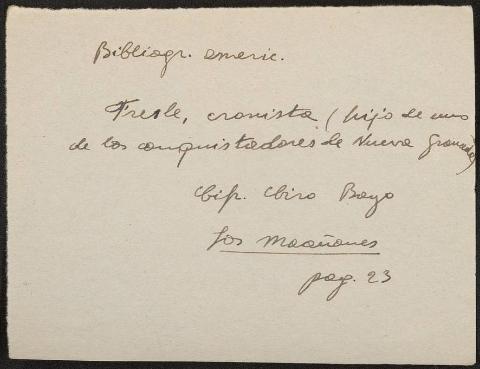 Bibliogr. americ.
Fresle, cronista (hijo de uno
de los conquistadores de Nueva Granada)
Cif. Ciro Bayo
Los Marañones
pag. 23